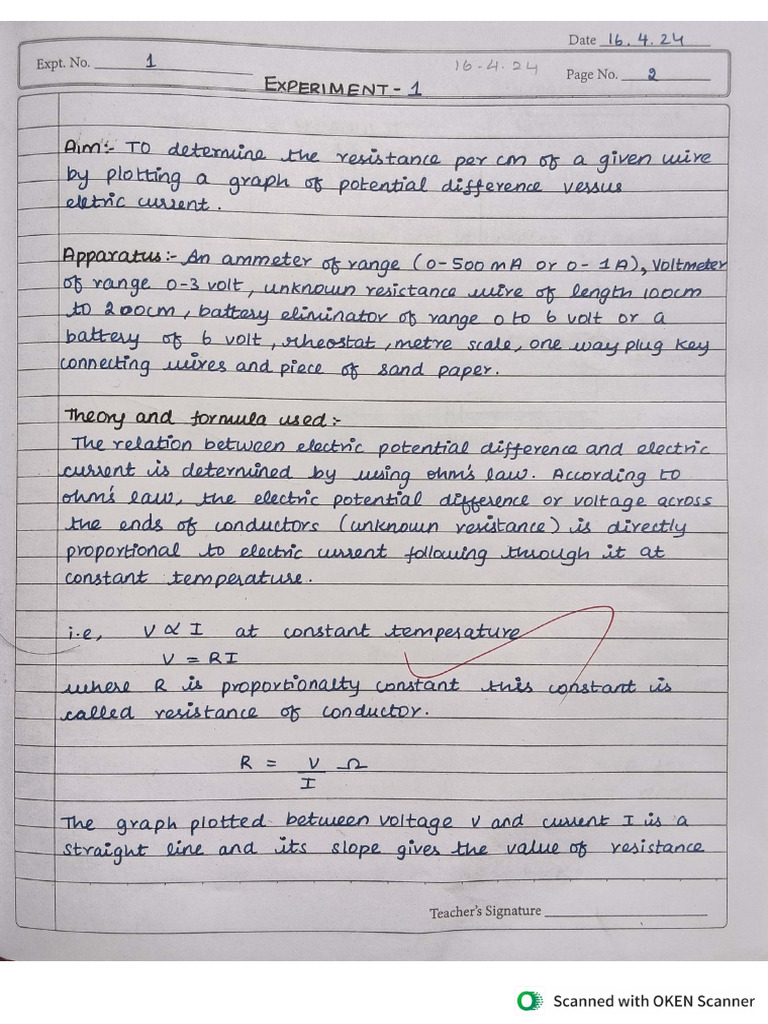 Date 16.4.24
Expt. No. 1
16-4.24
Page No. 2
EXPERIMENT-1
Aim:- TO determine the resistance per cm of a given wire
by plotting a graph of potential difference versus
eletric current.
Apparatus:- An ammeter of range (0-500 mA or 0-1A), Voltmeter
of range 0-3 volt, unknown resistance wire of length 100cm
to 200cm, battery eliminator of range 0 to 6 volt or a
battery of 6 volt, rheostat, metre scale, one way plug key
connecting wires and piece of sand paper.
Theory and formula used:-
The relation between electric potential difference and electric
current is determined by using ohm's law. According to
ohm's law, the electric potential difference or voltage across
the ends of conductors (unknown resistance) is directly
proportional to electric current following through it at
constant temperature.
i.e, V ∝ I at constant temperature
V = RI
where R is proportionalty constant this constant is
called resistance of conductor.
R = V/I Ω
The graph plotted between voltage V and current I is a
straight line and its slope gives the value of resistance
Teacher's Signature
Scanned with OKEN Scanner